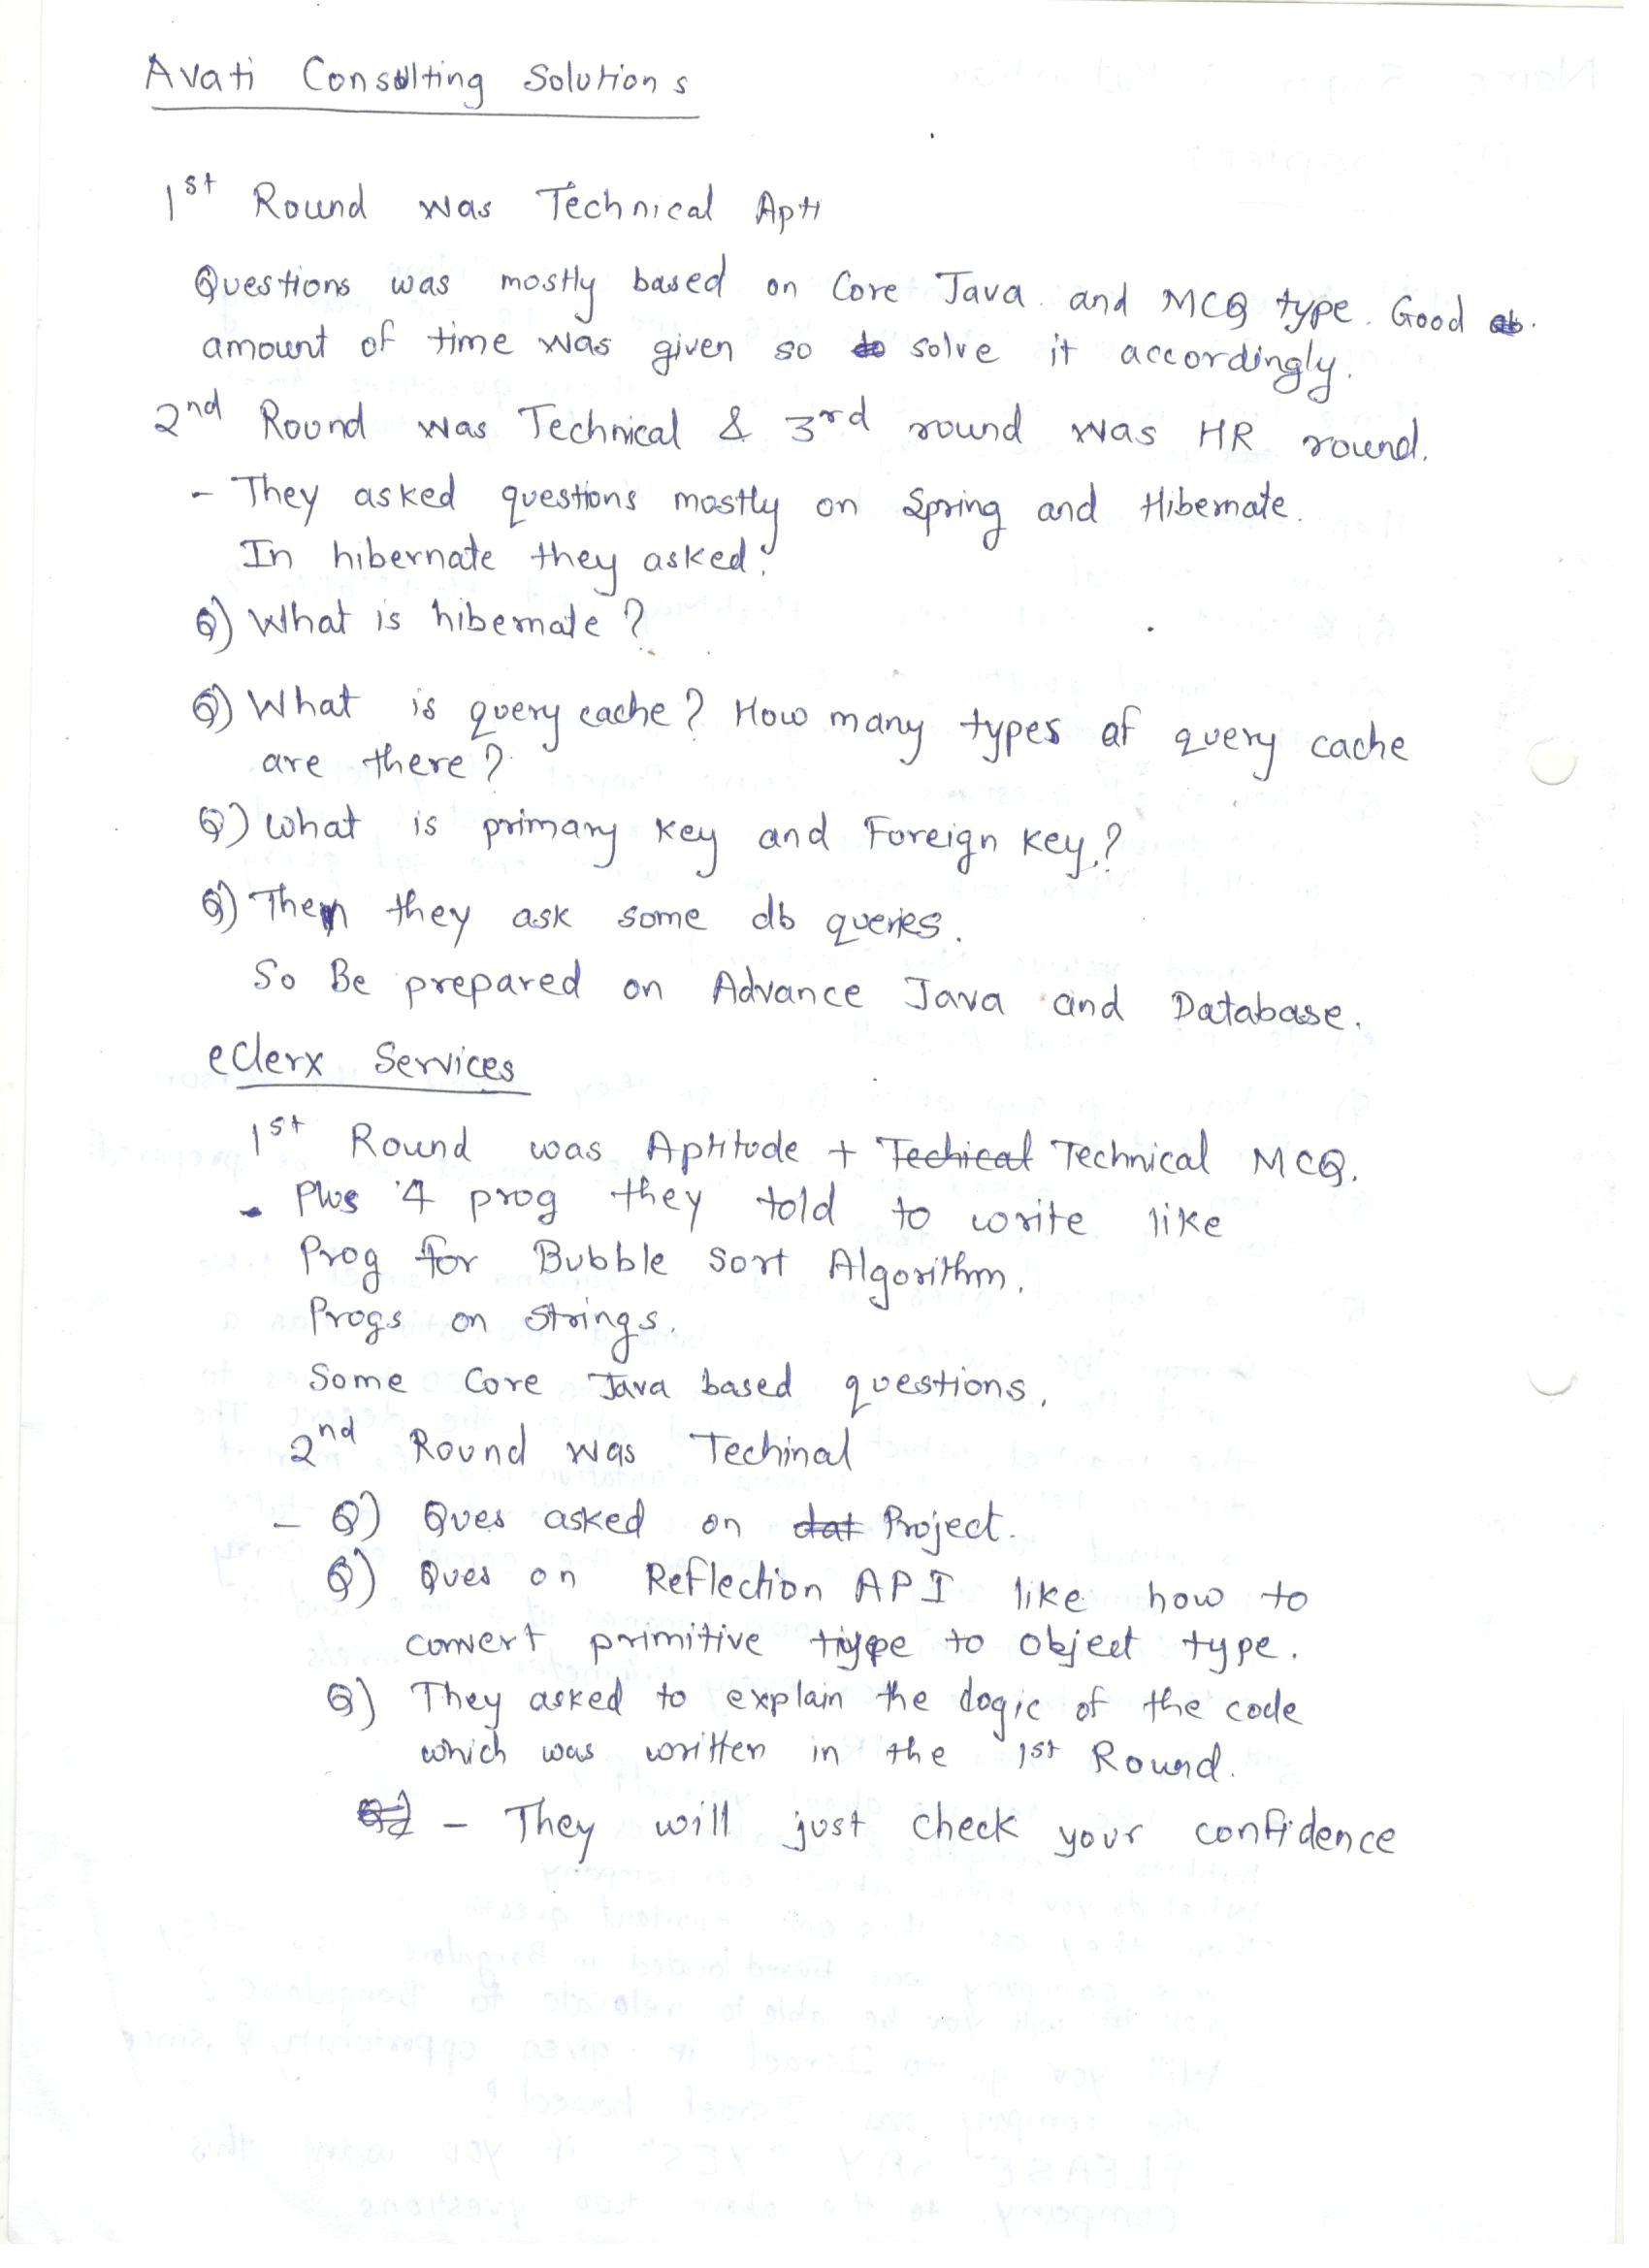 Avati Consulting Solutions
1st Round was Technical Apti
Questions was mostly based on Core Java and MCQ type. Good
amount of time was given so do solve it accordingly.
2nd Round was Technical & 3rd round was HR round.
- They asked questions mostly on Spring and Hibernate.
In hibernate they asked:
Q) What is hibernate?
Q) What is query cache? How many types of query cache
are there?
Q) what is primary key and Foreign key?
Q) Then they ask some db queries.
So Be prepared on Advance Java and Database.
eClerx Services
1st Round was Aptitude + Techical Technical MCQ.
- Plus 4 prog they told to write like
Prog for Bubble sort Algorithm.
Progs on strings.
Some Core Java based questions.
2nd Round was Techinal
- Q) Ques asked on dat Project.
Q) Ques on Reflection API like how to
convert primitive type to object type.
Q) They asked to explain the logic of the code
which was written in the 1st Round.
Q) - They will just check your confidence